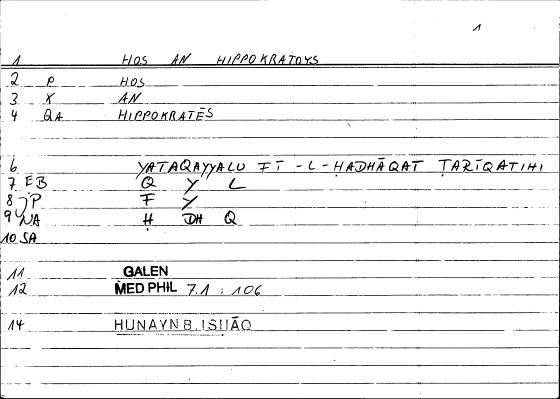 1
1 HOS AN HIPPOKRATOYS
2 P HOS
3 X AN
4 QA HIPPOKRATĒS
6 YATAQAYYALU FĪ -L- ḤADHĀQAT ṬARĪQATIHI
7 EB Q Y L
8 JP F Y
9 NA Ḥ DH Q
10 SA
11 GALEN
12 MED PHIL 7.1 : 106
14 HUNAYN B. ISḤĀQ